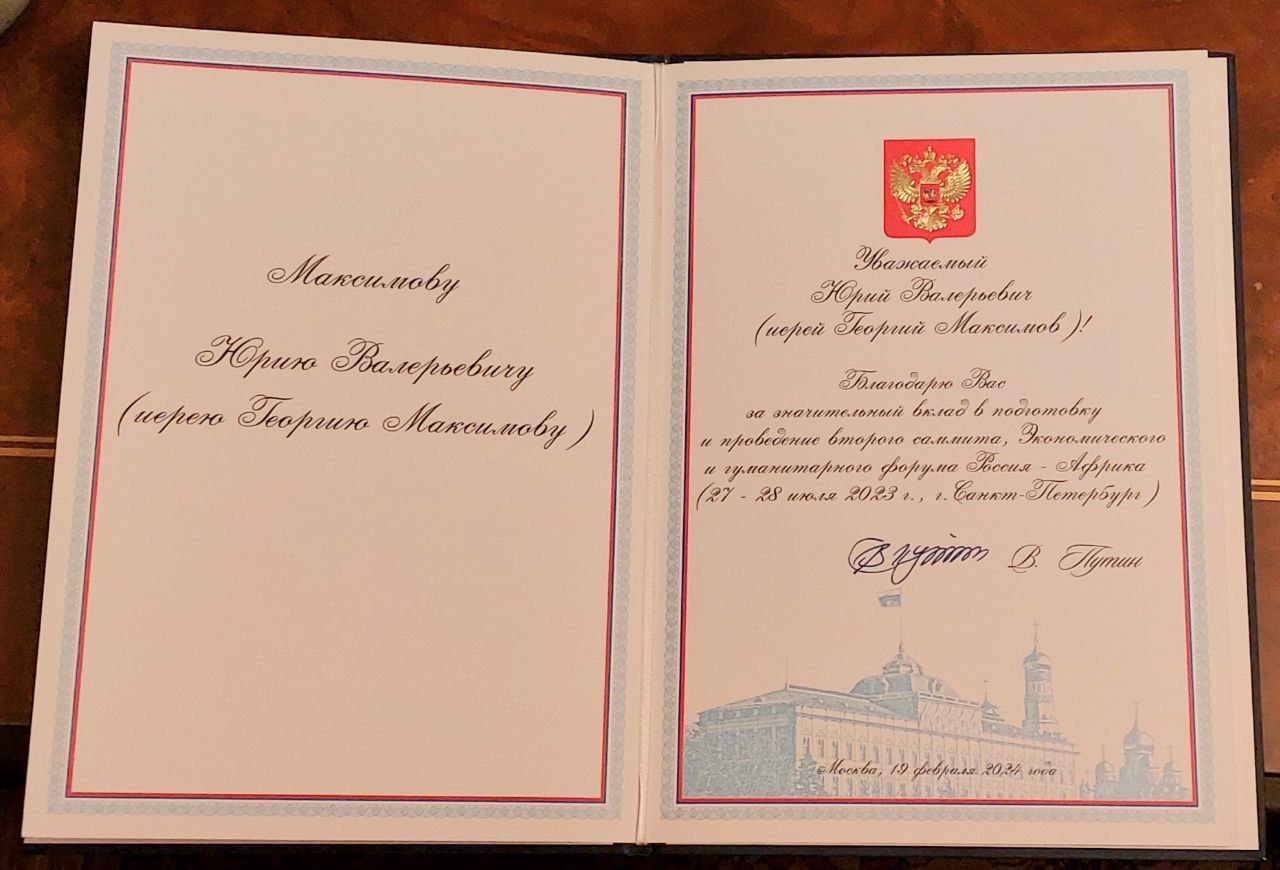 Максимову
Юрию Валерьевичу
(иерею Георгию Максимову )
Уважаемый
Юрий Валерьевич
(иерей Георгий Максимов )!
Благодарю Вас
за значительный вклад в подготовку
и проведение второго саммита, Экономического
и гуманитарного форума Россия - Африка
(27 - 28 июля 2023 г., г.Санкт-Петербург )
В Путин В. Путин
Москва, 19 февраля 2024 года